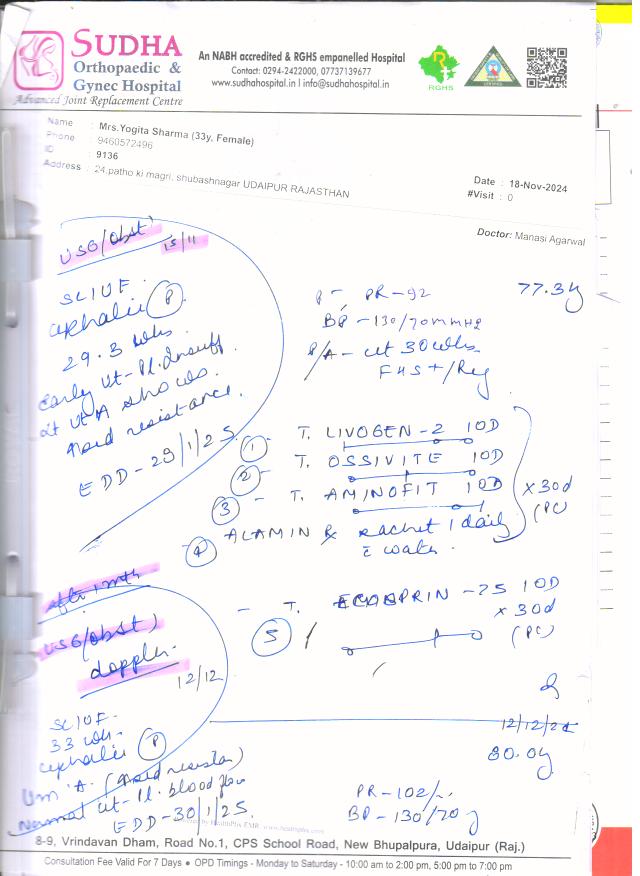 SUDHA
Orthopaedic &
Gynec Hospital
Advanced Joint Replacement Centre
An NABH accredited & RGHS empanelled Hospital
Contact: 0294-2422000, 07737139677
www.sudhahospital.in | info@sudhahospital.in
RGHS
Name : Mrs.Yogita Sharma (33y, Female)
Phone : 9460572496
ID : 9136
Address : 24,patho ki magri, shubashnagar UDAIPUR RAJASTHAN
Date : 18-Nov-2024
#Visit : 0
Doctor: Manasi Agarwal
USG/obst
15/11
SLIUF
cephalic (P)
29.3 wks.
Early Ut-Pl. Insuff
Lt Ut A shows
resistance.
EDD-29/1/25
PR-92
77.3
BP-130/70mmHg
P/A- Ut 30 wks
FHS+/Reg
1 - T. LIVOGEN-2 1OD
2 - T. OSSIVITE 1OD
3 - T. AMINOFIT 1OD
x 30d
(PC)
4 ALAMIN sachet 1 daily
c water.
after 1 mth
USG (obst)
doppler
12/12
5 - T. ECOSPRIN-75 1OD
x 30d
(PC)
SLIUF-
33 wk-
cephalic (P)
Um A.
Normal Ut-Pl. blood flow
EDD-30/1/25.
12/12/24
80.0
PR-102/
BP-130/70
www.healthplix.com
8-9, Vrindavan Dham, Road No.1, CPS School Road, New Bhupalpura, Udaipur (Raj.)
Consultation Fee Valid For 7 Days ● OPD Timings - Monday to Saturday - 10:00 am to 2:00 pm, 5:00 pm to 7:00 pm